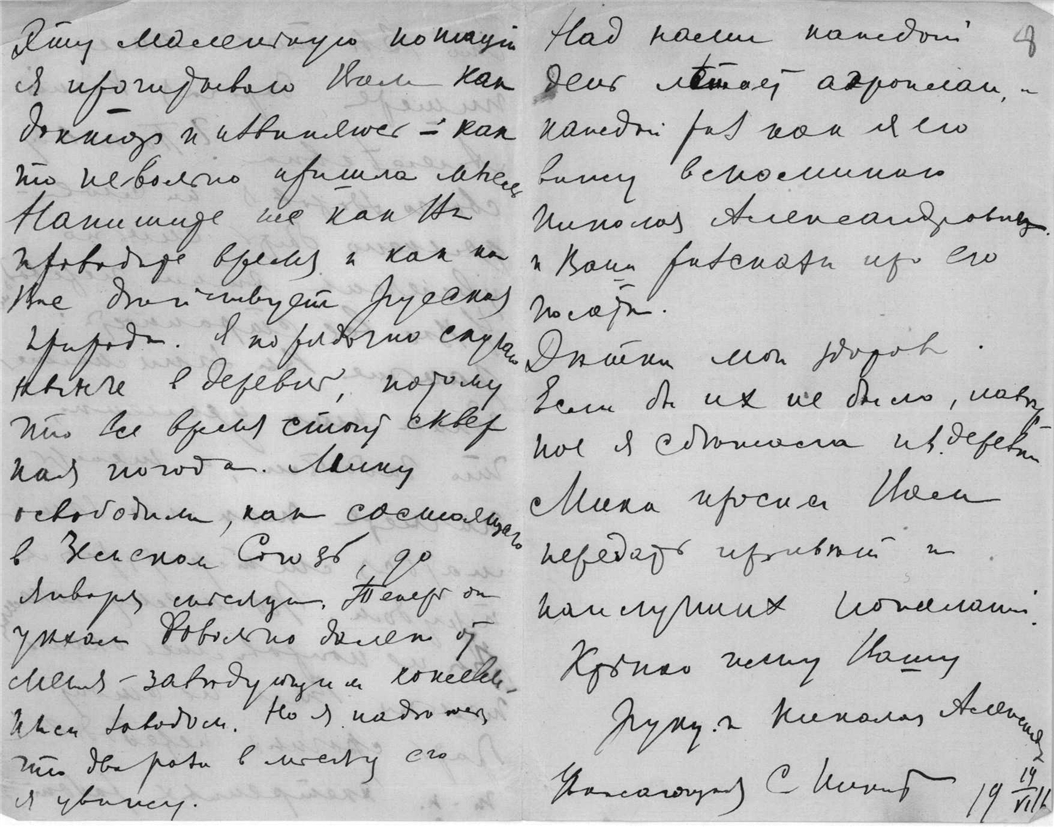 Эту маленькую нотацiю
я прочитываю Вамъ как
докторъ и извиняюсь – как
то невольно пришла мысль
Напишите же какъ Вы
проводите время и какъ на
Вас действуетъ русская
природа. Я порядочно скучаю
нынче в деревнѣ, потому
что все время стоит сквер
ная погода. Мишу
освободили, какъ состоящаго
в Земском Союзѣ, до
января месяца. Теперь он
уѣхал довольно далеко от
меня – завѣдующим
заводом. Но я надѣюсь
что два раза в месяцъ его
я увижу.
Над нами каждый
день летает аэроплан, и
каждый раз как я его
вижу вспоминаю
Николая Александровича
и Ваши разсказы про его
полеты.
Дѣтки мои здоровы.
Если бы их не было, навѣр
ное я сбѣжала из деревни
Миша просил Вам
передать привѣт и
наилучших пожеланiй.
Крѣпко жму Вашу
руку и Николая Алексан
Уважающая С
19 19/VI 16
8